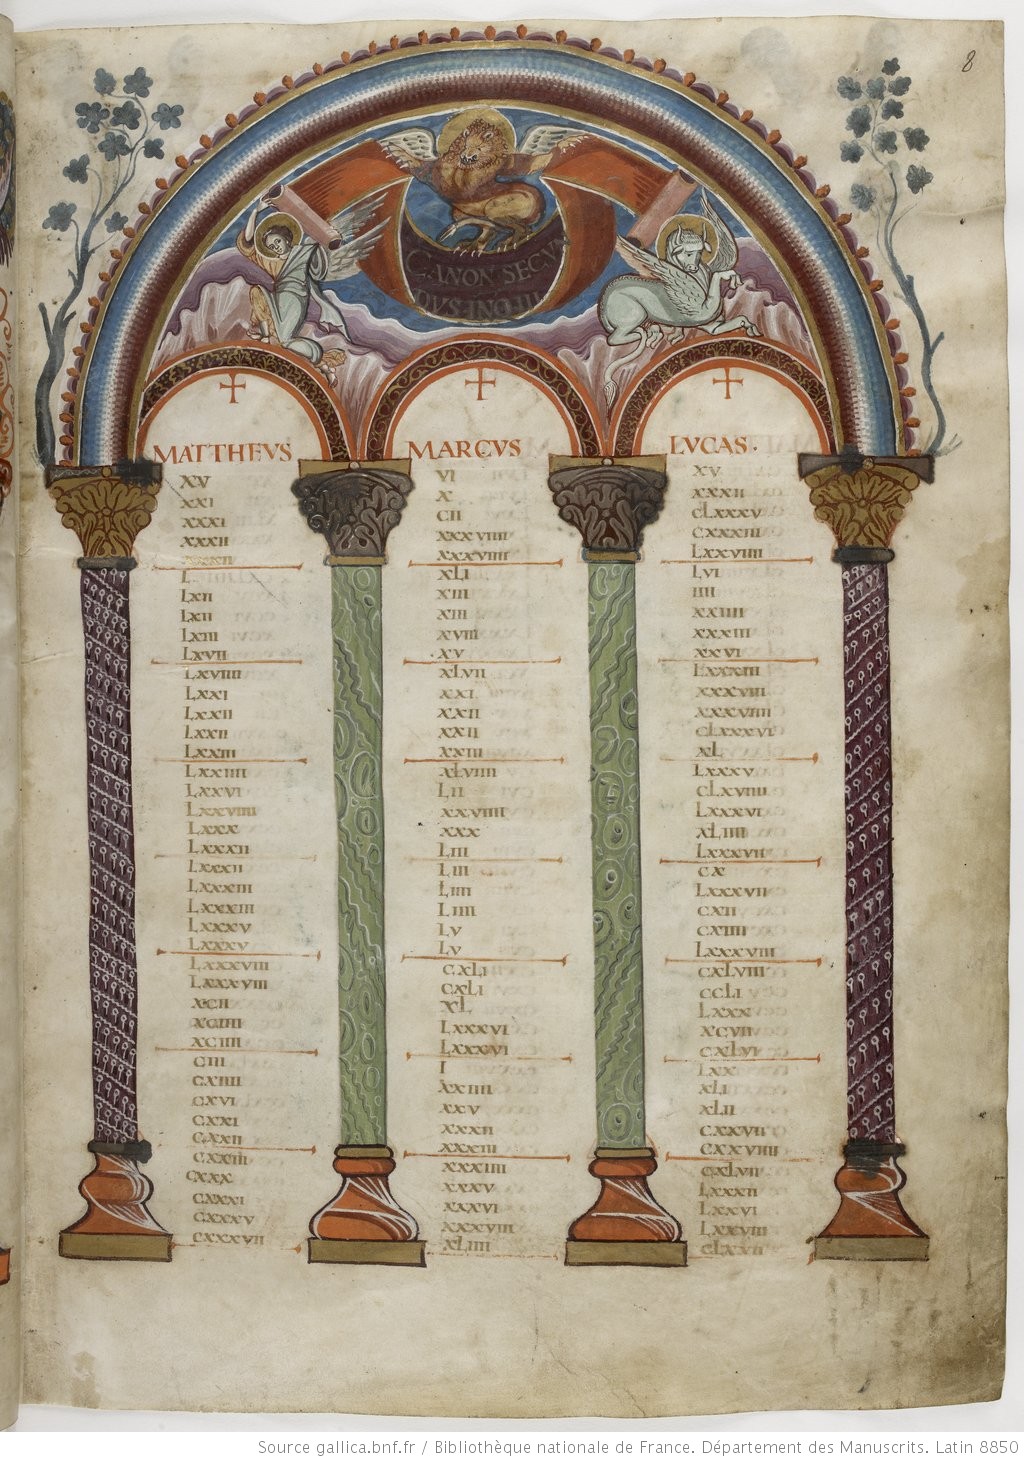 8
CANON SECUN
DUS IN QUO III
MATTHEVS
MARCVS
LVCAS.
XV
XXI
XXXI
XXXII
XXXII
L
LXII
LXII
LXIII
LXVII
LXVIIII
LXXI
LXXII
LXXII
LXXIII
LXXIIII
LXXVI
LXXVIIII
LXXX
LXXXII
LXXXII
LXXXIII
LXXXIII
LXXXV
LXXXV
LXXXVIII
LXXXVIII
XCII
XCIIII
XCIIII
CIII
CXIIII
CXVI
CXXI
CXXII
CXXIII
CXXX
CXXXI
CXXXV
CXXXVII
VI
X
CII
XXXVIIII
XXXVIIII
XLI
XIII
XIII
XVIII
XV
XLVII
XXI
XXII
XXII
XXIII
XLVIIII
LII
XXVIIII
XXX
LIII
LIII
LIIII
LIIII
LV
LV
CXLI
CXLI
XL
LXXXVI
LXXXVI
I
XXIIII
XXV
XXXII
XXXIII
XXXIIII
XXXV
XXXVI
XXXVIII
XLIIII
XV
XXXII
CLXXXV
CXXXIII
LXXVIIII
LVI
IIII
XXIIII
XXXIII
XXVI
LXXXIII
XXXVIII
XXXVIIII
CLXXXVI
XL
LXXXV
CLXVIIII
LXXXVI
XLIIII
LXXXVII
CX
LXXXVII
CXII
CXIIII
LXXXVIII
CXLVIII
CCLI
LXXX
XCVII
CXLVI
LXX
XLI
XLII
CXXVII
CXXVIIII
CXLVII
LXXXII
LXXVI
LXXVIII
CLXVII
Source gallica.bnf.fr / Bibliothèque nationale de France. Département des Manuscrits. Latin 8850